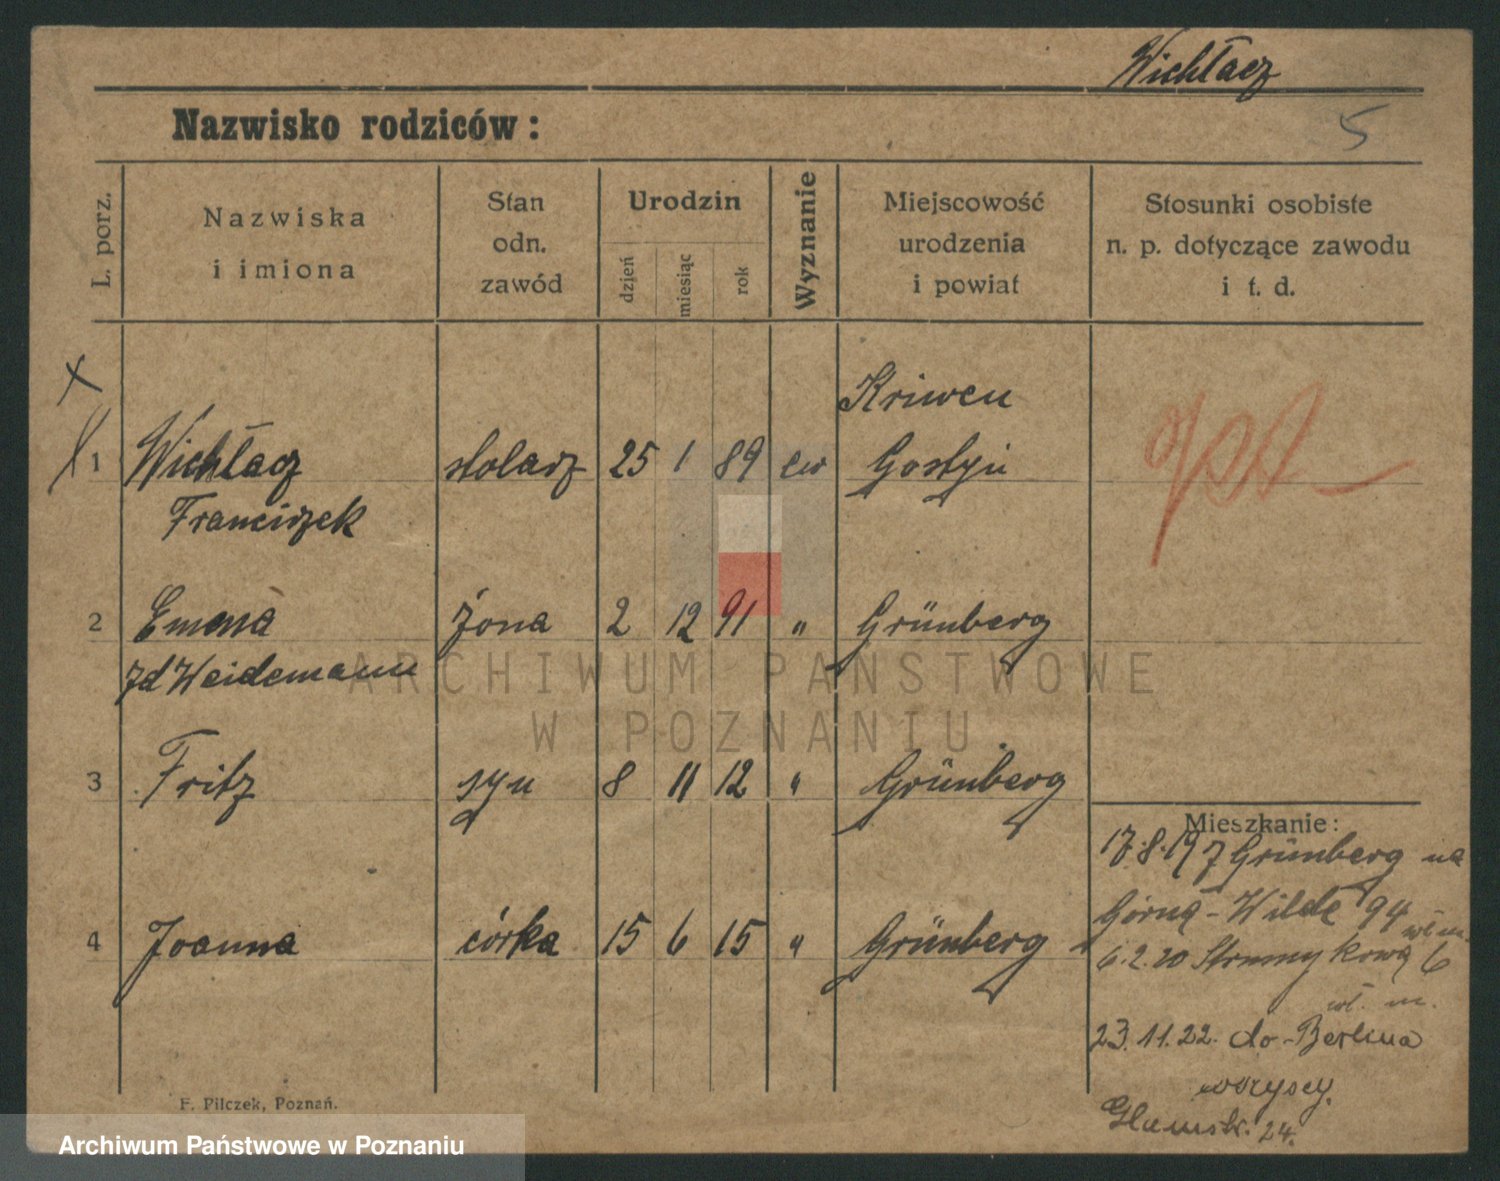 Wichłacz
Nazwisko rodziców:
5
L. porz.
Nazwiska
i imiona
Stan
odn.
zawód
Urodzin
dzień
miesiąc
rok
Wyznanie
Miejscowość
urodzenia
i powiat
Stosunki osobiste
n. p. dotyczące zawodu
i t. d.
Kriwen
1 Wichłacz stolarz 25 1 89 ew Gostyń
Franciszek
2 Emma żona 2 12 91 " Grünberg
zd Weidemann
3 Fritz syn 8 11 12 " Grünberg
4 Joanna córka 15 6 15 " Grünberg
Mieszkanie:
17.8.19 z Grünberg na
Górną-Wilde 94
wł. m.
6.2.20 Strumykową 6
wł. m.
23.11.22. do Berlina
wszyscy.
24.
F. Pilczek, Poznań.
ARCHIWUM PAŃSTWOWE
W POZNANIU
Archiwum Państwowe w Poznaniu